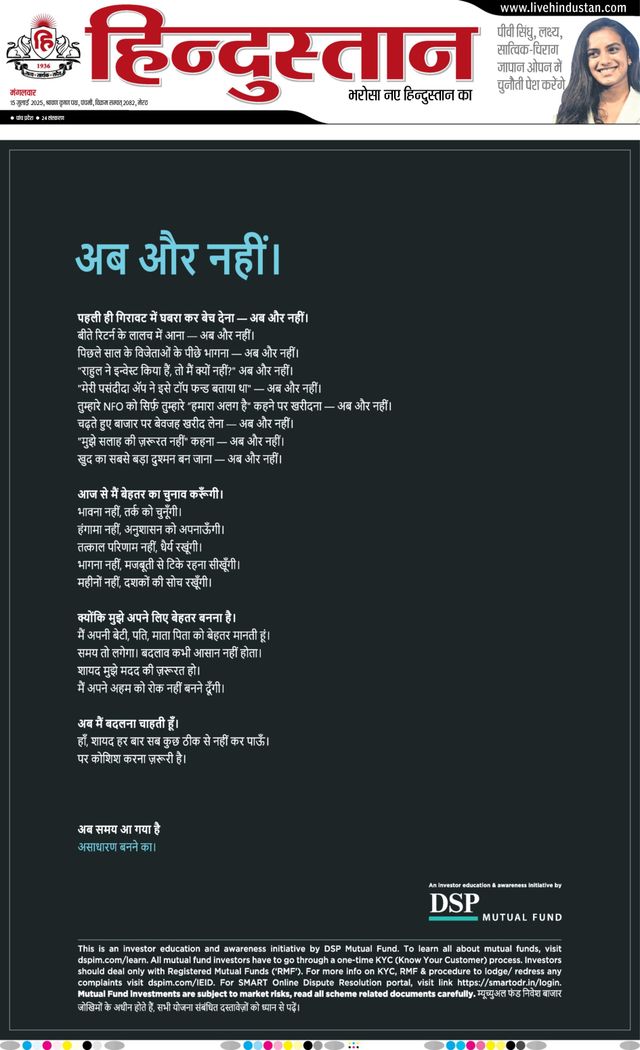 www.livehindustan.com
हि
1936
हिन्दुस्तान
भरोसा नए हिन्दुस्तान का
पीवी सिंधु, लक्ष्य,
सात्विक-चिराग
जापान ओपन में
चुनौती पेश करेंगे
मंगलवार
15 जुलाई 2025, श्रावण कृष्ण पक्ष, पंचमी, विक्रम सम्वत् 2082, मेरठ
● पांच प्रदेश ● 24 संस्करण
अब और नहीं।
पहली ही गिरावट में घबरा कर बेच देना — अब और नहीं।
बीते रिटर्न के लालच में आना — अब और नहीं।
पिछले साल के विजेताओं के पीछे भागना — अब और नहीं।
"राहुल ने इन्वेस्ट किया हैं, तो मैं क्यों नहीं?" अब और नहीं।
"मेरी पसंदीदा ॲप ने इसे टॉप फन्ड बताया था" — अब और नहीं।
तुम्हारे NFO को सिर्फ़ तुम्हारे "हमारा अलग है" कहने पर खरीदना — अब और नहीं।
चढ़ते हुए बाजार पर बेवजह खरीद लेना — अब और नहीं।
"मुझे सलाह की ज़रूरत नहीं" कहना — अब और नहीं।
खुद का सबसे बड़ा दुश्मन बन जाना — अब और नहीं।
आज से मैं बेहतर का चुनाव करूँगी।
भावना नहीं, तर्क को चुनूँगी।
हंगामा नहीं, अनुशासन को अपनाऊँगी।
तत्काल परिणाम नहीं, धैर्य रखूंगी।
भागना नहीं, मजबूती से टिके रहना सीखूँगी।
महीनों नहीं, दशकों की सोच रखूँगी।
क्योंकि मुझे अपने लिए बेहतर बनना है।
मैं अपनी बेटी, पति, माता पिता को बेहतर मानती हूं।
समय तो लगेगा। बदलाव कभी आसान नहीं होता।
शायद मुझे मदद की ज़रूरत हो।
मैं अपने अहम को रोक नहीं बनने दूँगी।
अब मैं बदलना चाहती हूँ।
हाँ, शायद हर बार सब कुछ ठीक से नहीं कर पाऊँ।
पर कोशिश करना ज़रूरी है।
अब समय आ गया है
असाधारण बनने का।
An investor education & awareness initiative by
DSP
MUTUAL FUND
This is an investor education and awareness initiative by DSP Mutual Fund. To learn all about mutual funds, visit
dspim.com/learn. All mutual fund investors have to go through a one-time KYC (Know Your Customer) process. Investors
should deal only with Registered Mutual Funds ('RMF'). For more info on KYC, RMF & procedure to lodge/ redress any
complaints visit dspim.com/IEID. For SMART Online Dispute Resolution portal, visit link https://smartodr.in/login.
Mutual Fund Investments are subject to market risks, read all scheme related documents carefully. म्यूच्युअल फंड निवेश बाजार
जोखिमों के अधीन होते हैं, सभी योजना संबंधित दस्तावेज़ों को ध्यान से पढ़ें।